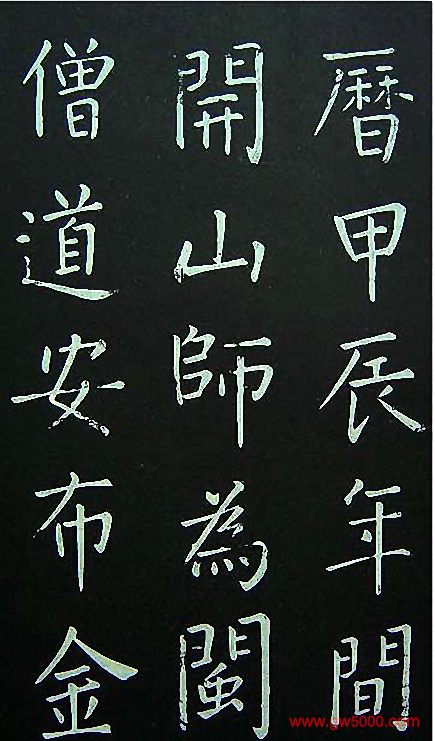 暦甲辰年間
開山師為閩
僧道安布金
www.gw5000.com